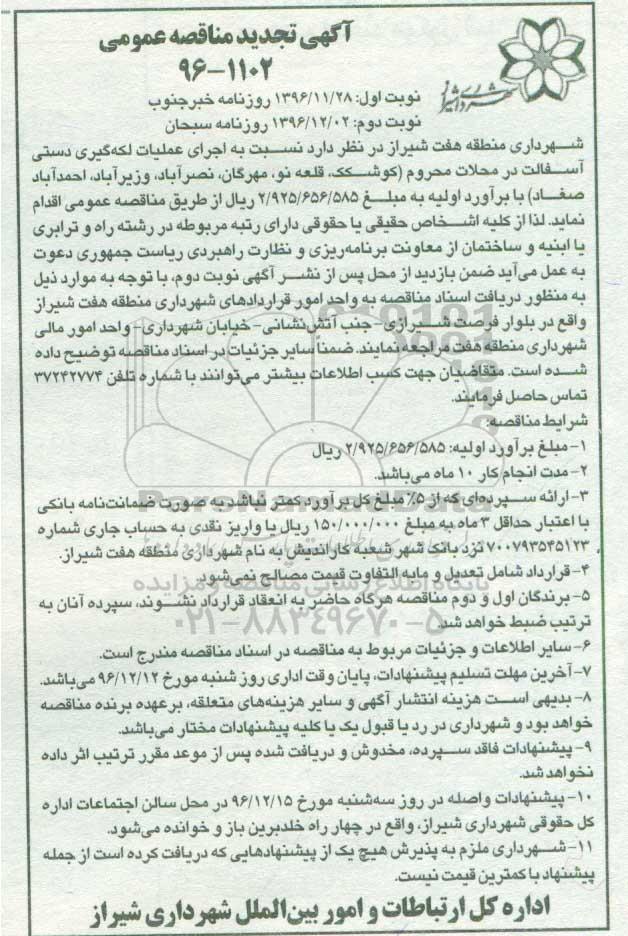 آگهی تجدید مناقصه عمومی
۹۶-۱۱۰۲
شهرداری شیراز
نوبت اول: ۱۳۹۶/۱۱/۲۸ روزنامه خبرجنوب
نوبت دوم: ۱۳۹۶/۱۲/۰۲ روزنامه سبحان
شهرداری منطقه هفت شیراز در نظر دارد نسبت به اجرای عملیات لکه‌گیری دستی
آسفالت در محلات محروم (کوشکک، قلعه نو، مهرگان، نصرآباد، وزیرآباد، احمدآباد
صغاد) با برآورد اولیه به مبلغ ۲/۹۲۵/۶۵۶/۵۸۵ ریال از طریق مناقصه عمومی اقدام
نماید. لذا از کلیه اشخاص حقیقی یا حقوقی دارای رتبه مربوطه در رشته راه و ترابری
یا ابنیه و ساختمان از معاونت برنامه‌ریزی و نظارت راهبردی ریاست جمهوری دعوت
به عمل می‌آید ضمن بازدید از محل پس از نشر آگهی نوبت دوم، با توجه به موارد ذیل
به منظور دریافت اسناد مناقصه به واحد امور قراردادهای شهرداری منطقه هفت شیراز
واقع در بلوار فرصت شیرازی- جنب آتش‌نشانی- خیابان شهرداری- واحد امور مالی
شهرداری منطقه هفت مراجعه نمایند. ضمناً سایر جزئیات در اسناد مناقصه توضیح داده
شده است. متقاضیان جهت کسب اطلاعات بیشتر می‌توانند با شماره تلفن ۳۷۲۴۲۷۷۴
تماس حاصل فرمایند.
شرایط مناقصه:
۱- مبلغ برآورد اولیه: ۲/۹۲۵/۶۵۶/۵۸۵ ریال
۲- مدت انجام کار ۱۰ ماه می‌باشد.
۳- ارائه سپرده‌ای که از ۵٪ مبلغ کل برآورد کمتر نباشد به صورت ضمانت‌نامه بانکی
با اعتبار حداقل ۳ ماه به مبلغ ۱۵۰/۰۰۰/۰۰۰ ریال یا واریز نقدی به حساب جاری شماره
۷۰۰۷۹۳۵۴۵۱۲۳ نزد بانک شهر شعبه کاراندیش به نام شهرداری منطقه هفت شیراز.
۴- قرارداد شامل تعدیل و مابه التفاوت قیمت مصالح نمی‌شود.
۵- برندگان اول و دوم مناقصه هرگاه حاضر به انعقاد قرارداد نشوند، سپرده آنان به
ترتیب ضبط خواهد شد.
۶- سایر اطلاعات و جزئیات مربوط به مناقصه در اسناد مناقصه مندرج است.
۷- آخرین مهلت تسلیم پیشنهادات، پایان وقت اداری روز شنبه مورخ ۹۶/۱۲/۱۲ می‌باشد.
۸- بدیهی است هزینه انتشار آگهی و سایر هزینه‌های متعلقه، برعهده برنده مناقصه
خواهد بود و شهرداری در رد یا قبول یک یا کلیه پیشنهادات مختار می‌باشد.
۹- پیشنهادات فاقد سپرده، مخدوش و دریافت شده پس از موعد مقرر ترتیب اثر داده
نخواهد شد.
۱۰- پیشنهادات واصله در روز سه‌شنبه مورخ ۹۶/۱۲/۱۵ در محل سالن اجتماعات اداره
کل حقوقی شهرداری شیراز، واقع در چهار راه خلدبرین باز و خوانده می‌شود.
۱۱- شهرداری ملزم به پذیرش هیچ یک از پیشنهادهایی که دریافت کرده است از جمله
پیشنهاد با کمترین قیمت نیست.
اداره کل ارتباطات و امور بین‌الملل شهرداری شیراز
ParsNamadData
پایگاه اطلاع رسانی مناقصه و مزایده
۰۲۱-۸۸۳۴۹۶۷۰-۵